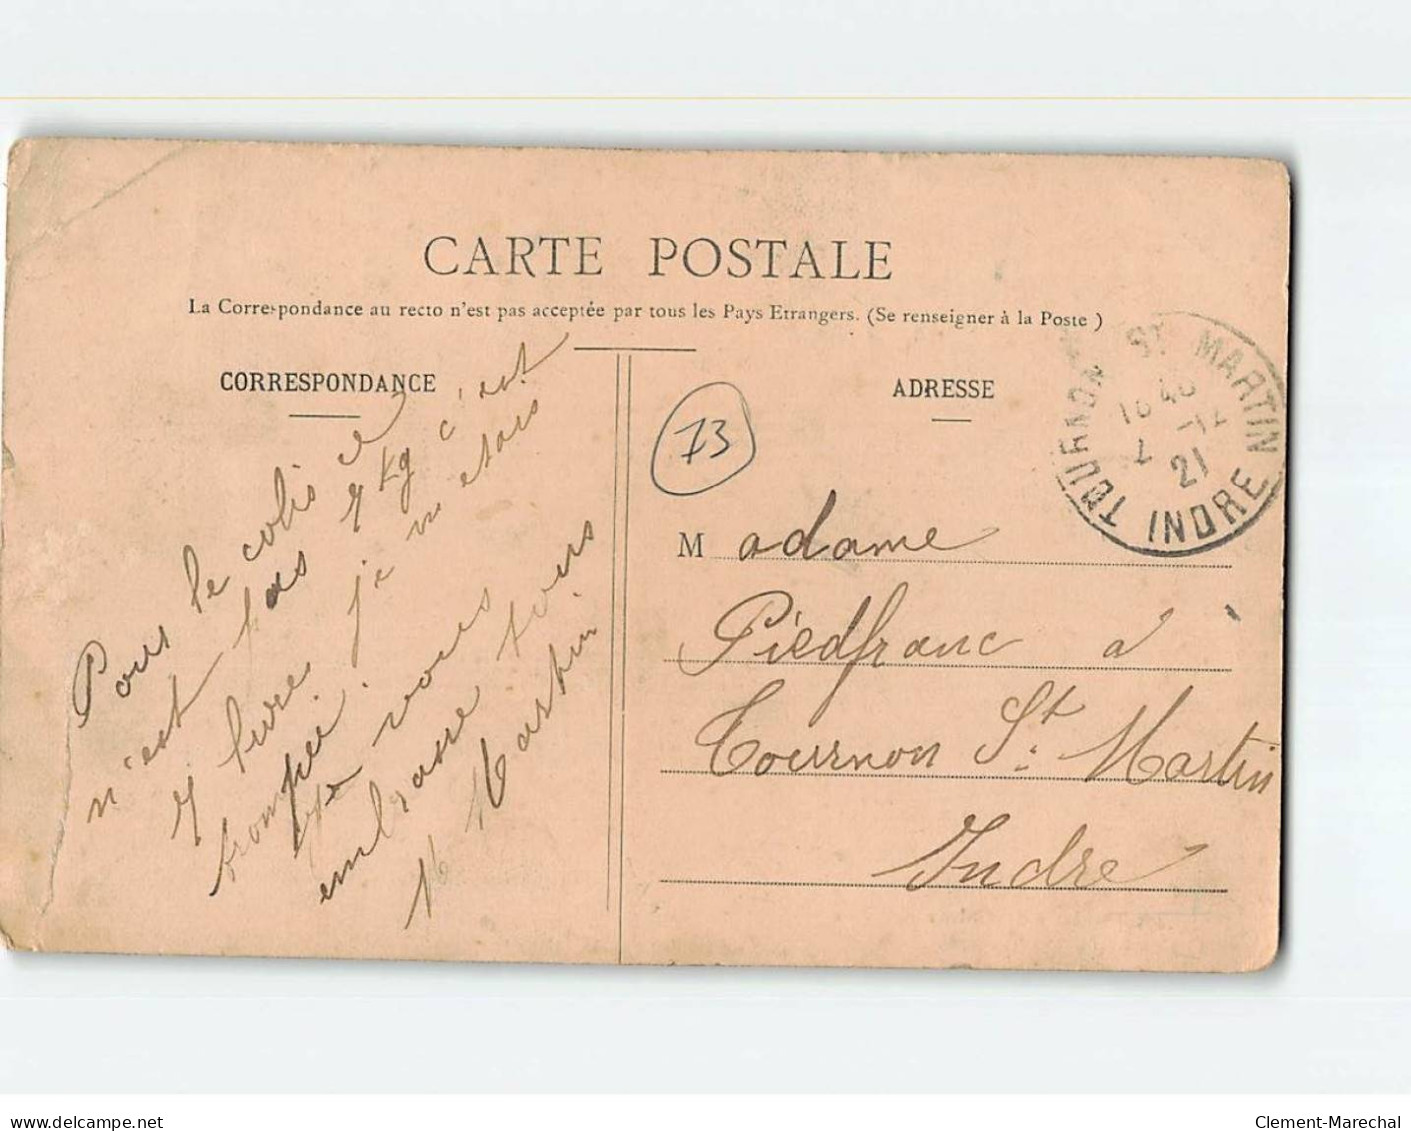 CARTE POSTALE
La Correspondance au recto n'est pas acceptée par tous les Pays Etrangers. (Se renseigner à la Poste )
CORRESPONDANCE
Pour le colis ce
n'est pas 7 kg c'est
7 livre je m etais
trompée.
Je vous
embrasse tous
M Martin
73
ADRESSE
TOURNON ST MARTIN
21
INDRE
Madame
Piedfranc a
Tournon St. Martin
Indre
www.delcampe.net
Clement-Marechal